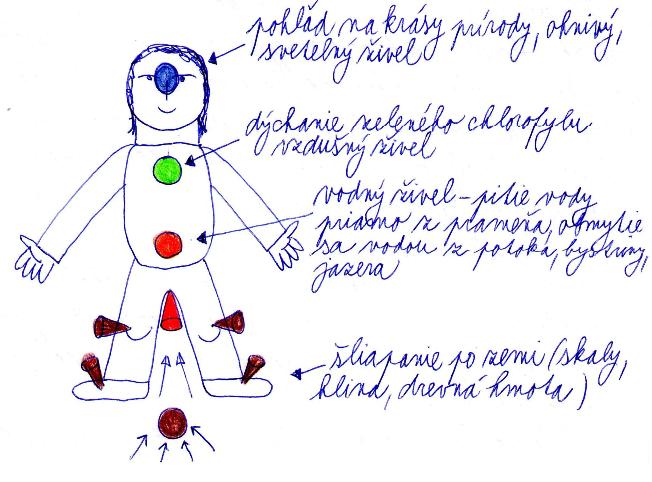 pohľad na krásy prírody, ohnivý,
svetelný živel
dýchanie zeleného chlorofylu
vzdušný živel
vodný živel - pitie vody
priamo z prameňa, obmytie
sa vodou z potoka, bystriny,
jazera
šliapanie po zemi (skaly,
hlina, drevná hmota)